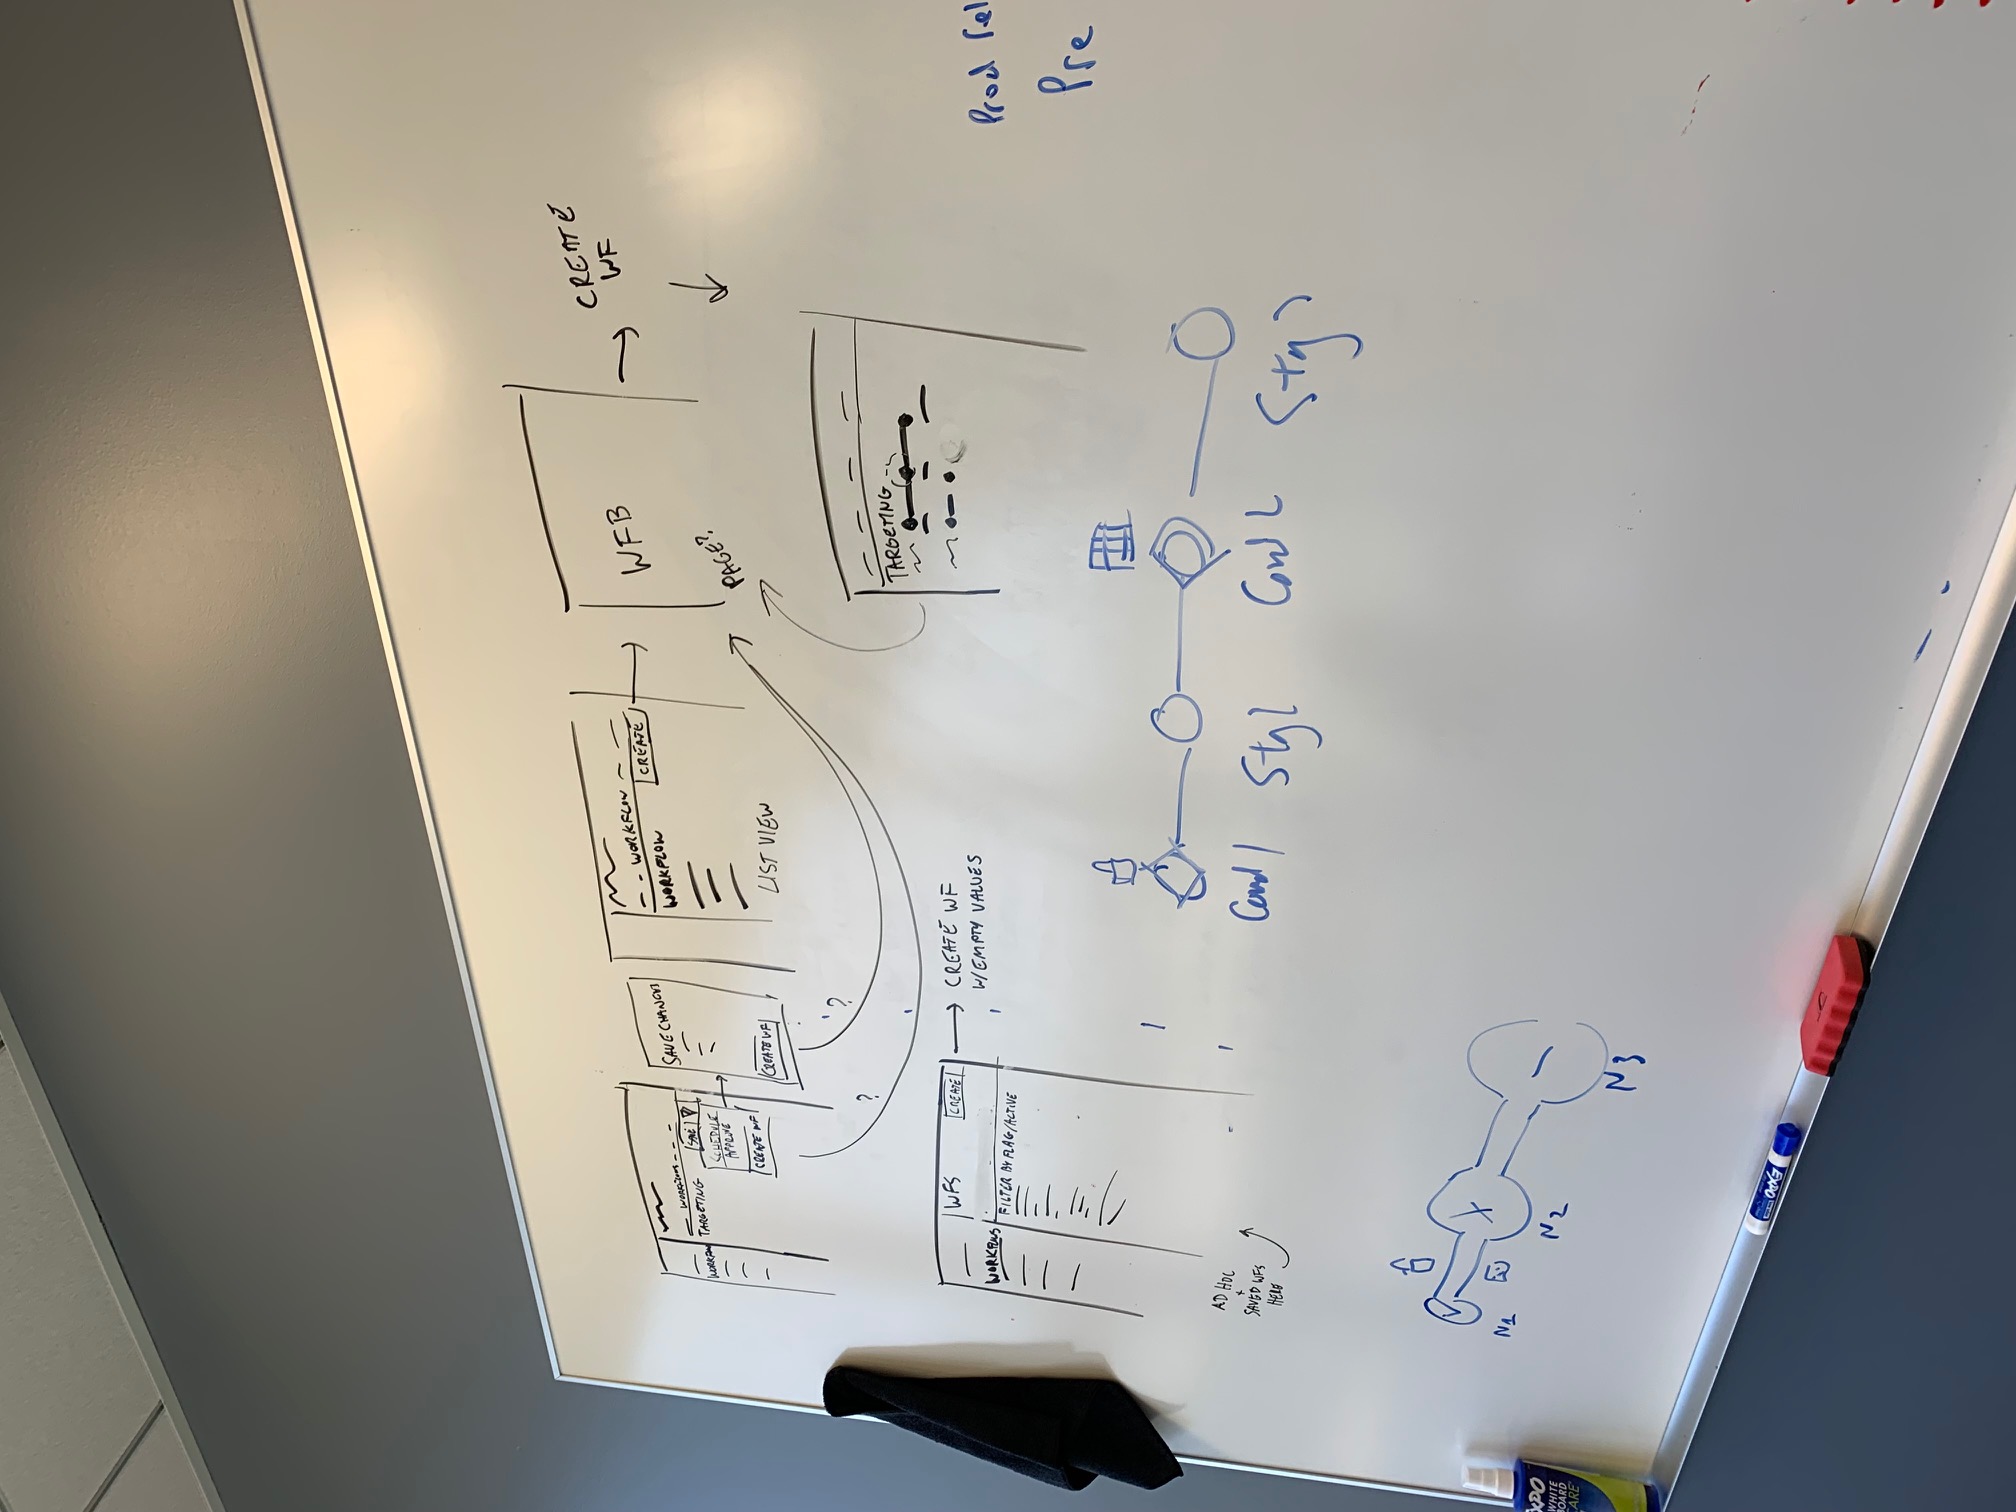 WORKFLOWS
TARGETING
SAVE
WORKFLOW
SCHEDULE
APPROVE
CREATE WF
SAVE CHANGES
CREATE WF
WORKFLOW
CREATE
WORKFLOW
LIST VIEW
WFB
PAGE?
CREATE
WF
?
?
TARGETING
WFS
CREATE
WORKFLOWS
FILTER BY FLAG/ACTIVE
CREATE WF
W/EMPTY VALUES
AD HOC
+
SAVED WFS
HERE
Prod
Pre
Cond 1
Stg 1
Cond 2
Stg
N1
N2
N3
EXPO
WHITE
BOARD
CARE
EXPO